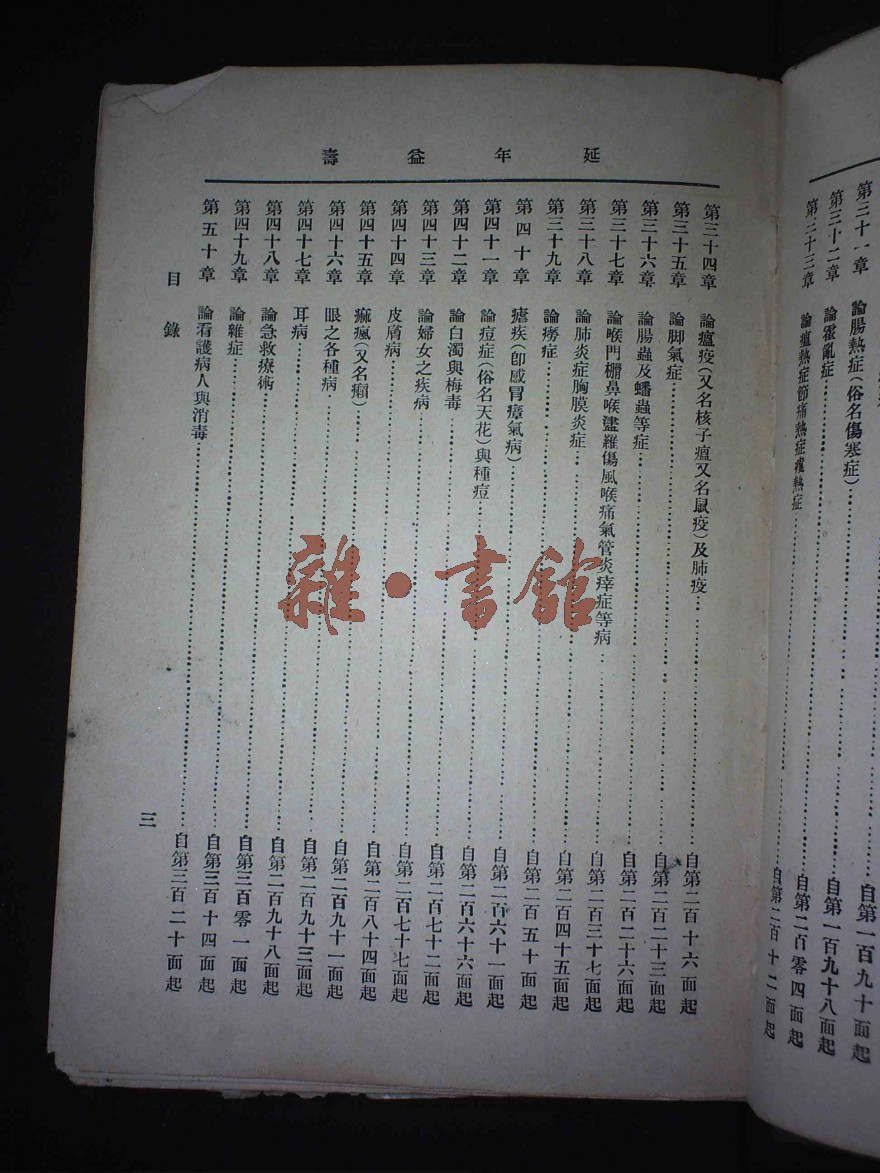 第三十一章 論腸熱症(俗名傷寒症)……自第一百九十面起
第三十二章 論霍亂症……自第一百九十八面起
第三十三章 論瘟熱症節痛熱症……自第二百零四面起
自第二百十二面起
延年益壽
第三十四章 論瘟疫(又名核子瘟又名鼠疫)及肺疫……自第二百十六面起
第三十五章 論脚氣症……自第二百二十三面起
第三十六章 論腸蟲及蟠蟲等症……自第二百二十六面起
第三十七章 論喉門棚鼻喉盪羅傷風喉痛氣管炎瘁症等病……自第二百三十七面起
第三十八章 論肺炎症胸膜炎症……自第二百四十五面起
第三十九章 論癆症……自第二百五十面起
第四十章 瘧疾(卽感冒瘴氣病)……自第二百六十一面起
第四十一章 論痘症(俗名天花)與種痘……自第二百六十六面起
第四十二章 論白濁與梅毒……自第二百七十二面起
第四十三章 論婦女之疾病……自第二百七十七面起
第四十四章 皮膚病……自第二百八十四面起
第四十五章 痲瘋(又名癩)……自第二百九十一面起
第四十六章 眼之各種病……自第二百九十三面起
第四十七章 耳病……自第二百九十八面起
第四十八章 論急救療術……自第三百零一面起
第四十九章 論雜症……自第三百十四面起
第五十章 論看護病人與消毒……自第三百二十面起
目錄
三
雜·書館